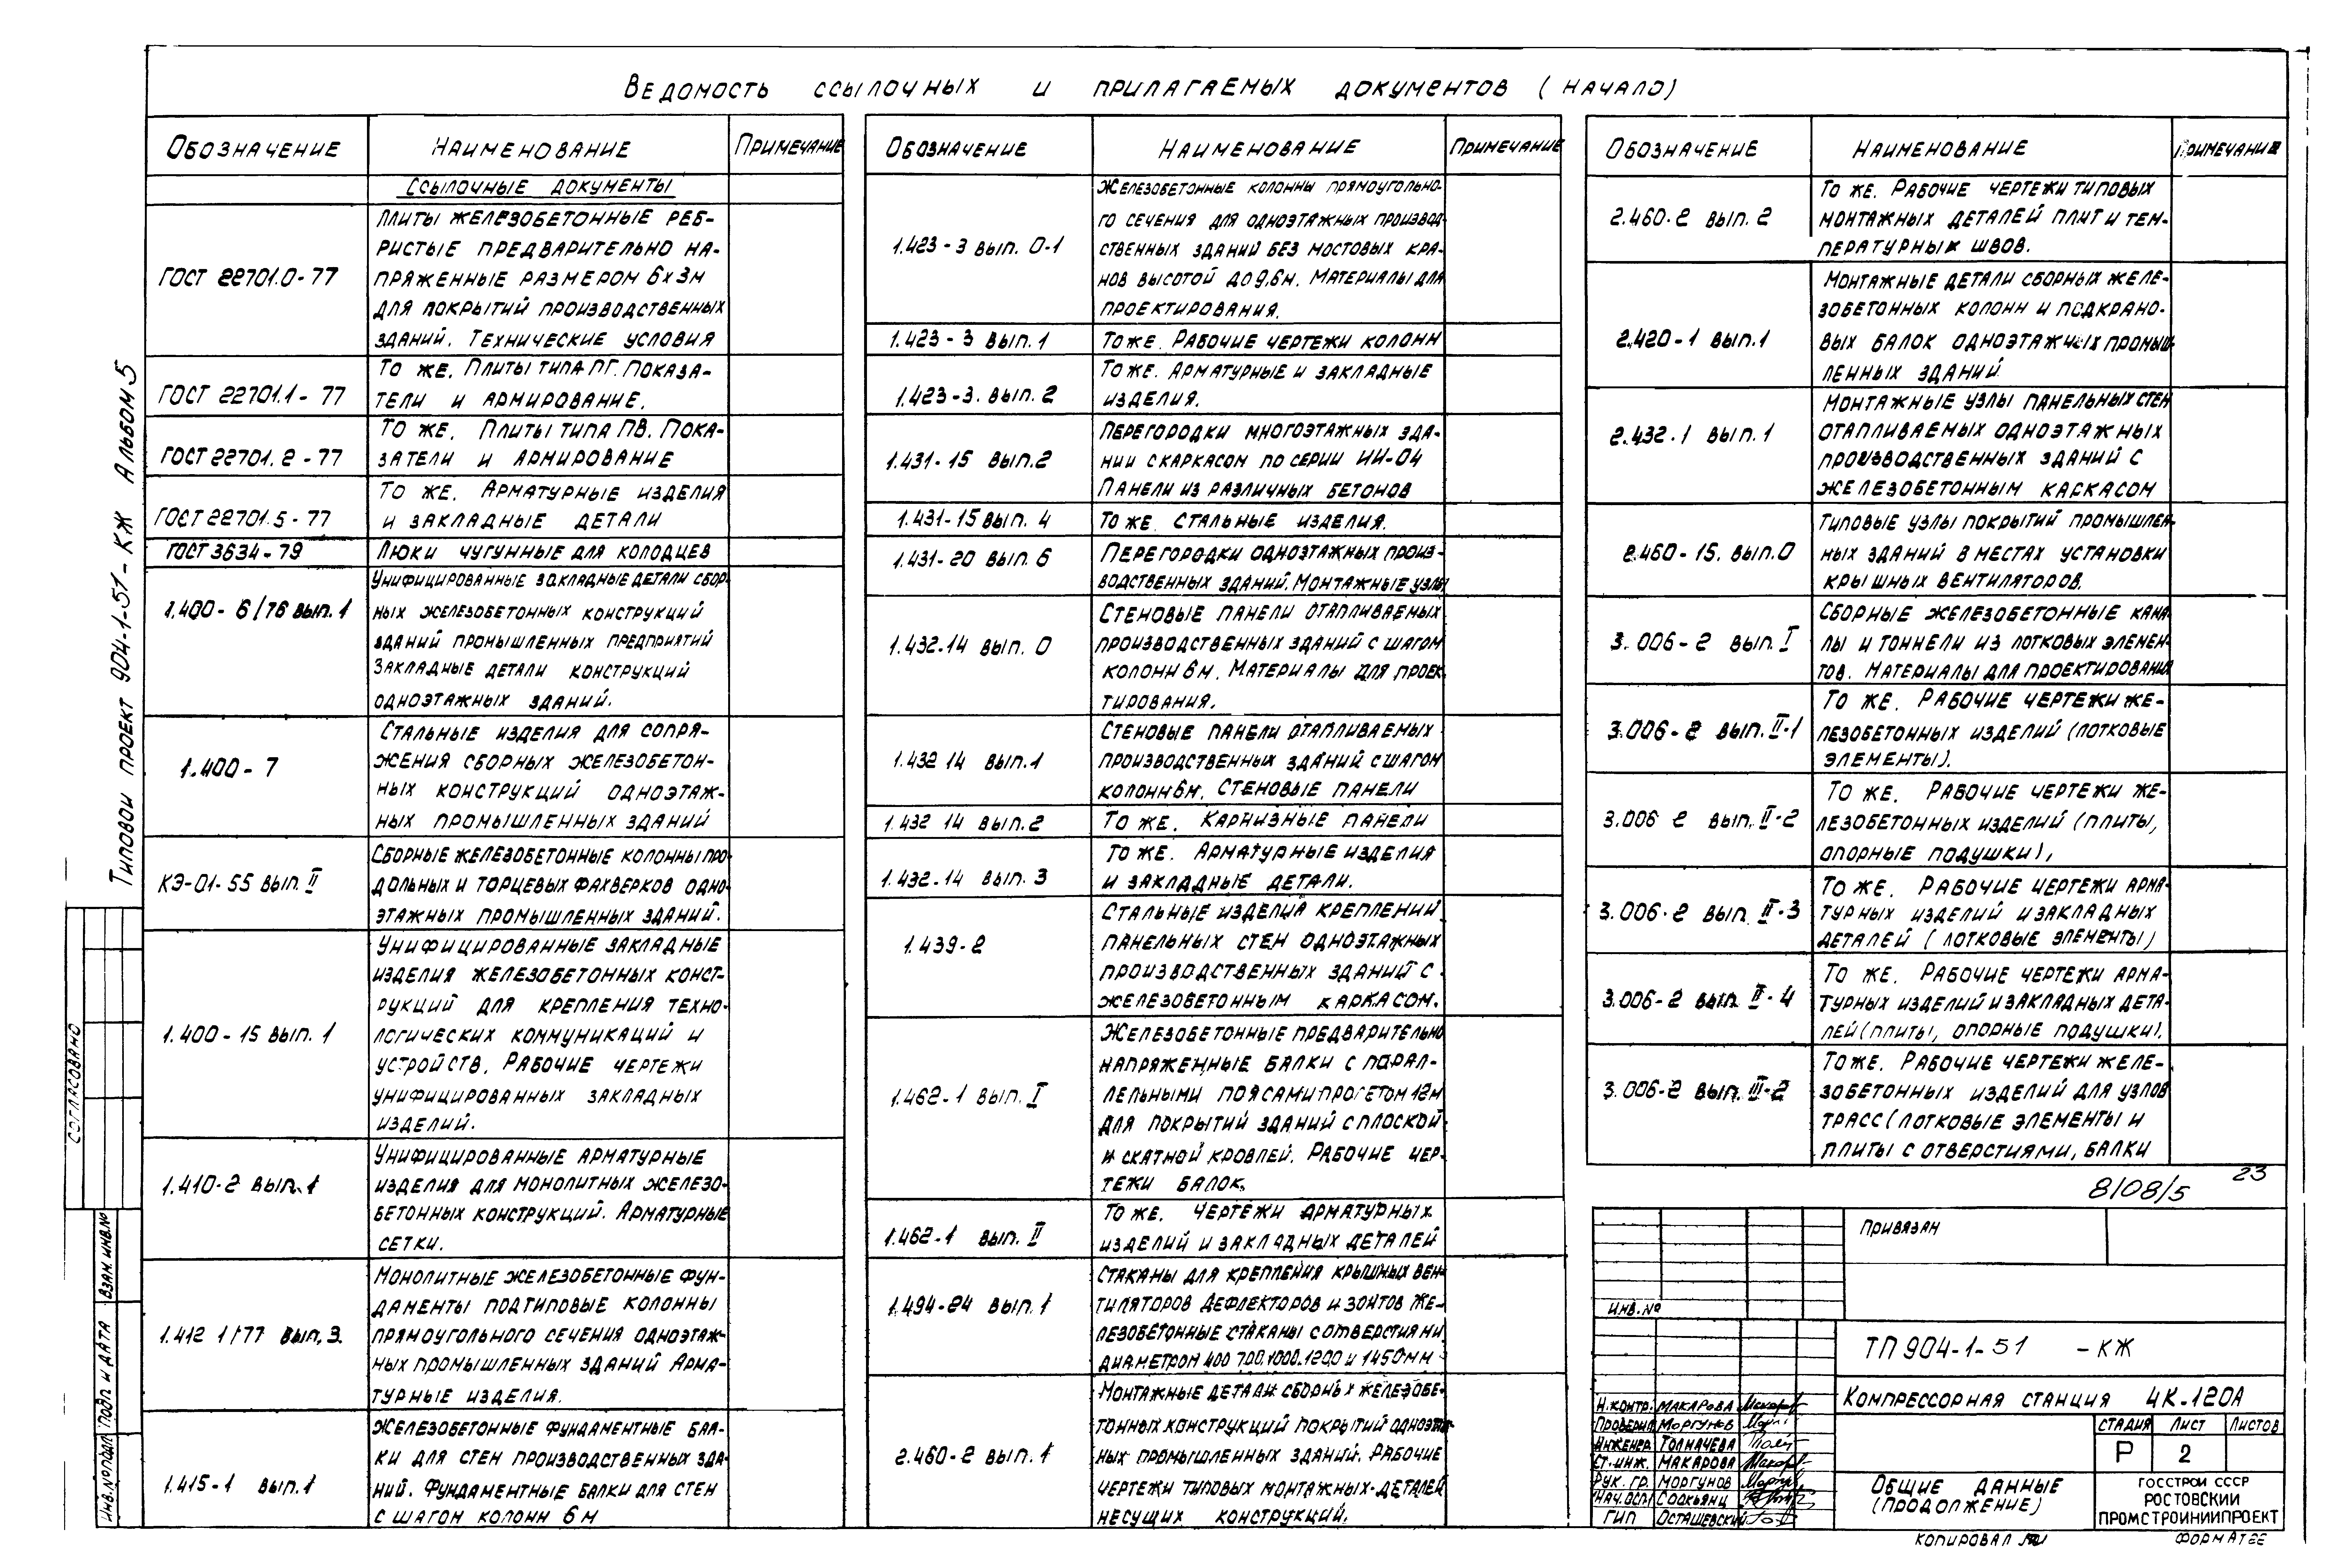 Ведомость ссылочных и прилагаемых документов (начало)
Обозначение Наименование Примечание
Ссылочные документы
ГОСТ 22701.0-77
Плиты железобетонные реб-
ристые предварительно на-
пряженные размером 6х3м
для покрытий производственных
зданий. Технические условия
ГОСТ 22701.1-77
То же. Плиты типа ПГ. Показа-
тели и армирование.
ГОСТ 22701.2-77
То же. Плиты типа ПВ. Пока-
затели и армирование
ГОСТ 22701.5-77
То же. Арматурные изделия
и закладные детали
ГОСТ 3634-79 Люки чугунные для колодцев
1.400-6/76 вып. 1
Унифицированные закладные детали сбор-
ных железобетонных конструкций
зданий промышленных предприятий
Закладные детали конструкций
одноэтажных зданий.
1.400-7
Стальные изделия для сопря-
жения сборных железобетон-
ных конструкций одноэтаж-
ных промышленных зданий
КЭ-01-55 вып. II
Сборные железобетонные колонны про-
дольных и торцевых фахверков одно-
этажных промышленных зданий.
1.400-15 вып. 1
Унифицированные закладные
изделия железобетонных конст-
рукций для крепления техно-
логических коммуникаций и
устройств. Рабочие чертежи
унифицированных закладных
изделий.
1.410-2 вып. 1
Унифицированные арматурные
изделия для монолитных железо-
бетонных конструкций. Арматурные
сетки.
1.412 1/77 вып. 3.
Монолитные железобетонные фун-
даменты под типовые колонны
прямоугольного сечения одноэтаж-
ных промышленных зданий Арма-
турные изделия.
1.415-1 вып. 1
Железобетонные фундаментные бал-
ки для стен производственных зда-
ний. Фундаментные балки для стен
с шагом колонн 6 м
Обозначение Наименование Примечание
1.423-3 вып. 0-1
Железобетонные колонны прямоугольно-
го сечения для одноэтажных производ-
ственных зданий без мостовых кра-
нов высотой до 9,6м. Материалы для
проектирования.
1.423-3 вып. 1 То же. Рабочие чертежи колонн
1.423-3. вып. 2
То же. Арматурные и закладные
изделия.
1.431-15 вып. 2
Перегородки многоэтажных зда-
нии с каркасом по серии ИИ-04
Панели из различных бетонов
1.431-15 вып. 4 То же стальные изделия.
1.431-20 вып. 6
Перегородки одноэтажных произ-
водственных зданий. Монтажные узлы
1.432.14 вып. 0
Стеновые панели отапливаемых
производственных зданий с шагом
колонн 6м. Материалы для проек-
тирования.
1.432 14 вып. 1
Стеновые панели отапливаемых
производственных зданий с шагом
колонн 6м. Стеновые панели
1.432 14 вып. 2 То же. Карнизные панели
1.432-14 вып. 3
То же. Арматурные изделия
и закладные детали.
1.439-2
Стальные изделия креплений
панельных стен одноэтажных
производственных зданий с
железобетонным каркасом.
1.462-1 вып. I
Железобетонные предварительно
напряженные балки с парал-
лельными поясами пролетом 12м
для покрытий зданий с плоской
и скатной кровлей. Рабочие чер-
тежи балок.
1.462-1 вып. II
То же. Чертежи арматурных
изделий и закладных деталей
1.494-24 вып. 1
Стаканы для крепления крышных вен-
тиляторов дефлекторов и зонтов же-
лезобетонные стаканы с отверстиями
диаметром 400 700, 1000, 1200 и 1450мм
2.460-2 вып. 1
Монтажные детали сборных железобе-
тонных конструкций покрытий одноэтаж-
ных промышленных зданий. Рабочие
чертежи типовых монтажных деталей
несущих конструкций.
Обозначение Наименование Примечание
2.460-2 вып. 2
То же. Рабочие чертежи типовых
монтажных деталей плит и тем-
пературных швов.
2.420-1 вып. 1
Монтажные детали сборных желе-
зобетонных колонн и подкрано-
вых балок одноэтажных промыш-
ленных зданий.
2.432.1 вып. 1
Монтажные узлы панельных стен
отапливаемых одноэтажных
производственных зданий с
железобетонным каркасом
2.460-15. вып. 0
Типовые узлы покрытий промышлен-
ных зданий в местах установки
крышных вентиляторов.
3.006-2 вып. I
Сборные железобетонные кана-
лы и тоннели из лотковых элемен-
тов. Материалы для проектирования
3.006-2 вып. II-1
То же. Рабочие чертежи же-
лезобетонных изделий (лотковые
элементы).
3.006 2 вып. II-2
То же. Рабочие чертежи же-
лезобетонных изделий (плиты,
опорные подушки),
3.006-2 вып. II-3
То же. Рабочие чертежи арма-
турных изделий и закладных
деталей (лотковые элементы)
3.006-2 вып. II-4
То же. Рабочие чертежи арма-
турных изделий и закладных дета-
лей (плиты, опорные подушки).
3.006-2 вып. III-2
То же. Рабочие чертежи желе-
зобетонных изделий для узлов
трасс (лотковые элементы и
плиты с отверстиями, балки
8108/5 23
Привязан
Инв. №
ТП 904-1-51 -КЖ
Компрессорная станция 4К-120А
Н.контр. Макарова
Проверил Моргунов
Инженер Толмачева
Ст. инж. Макарова
Рук. гр. Моргунов
Нач. осп
ГИП Осташевский
Стадия Лист Листов
Р 2
Общие данные
(продолжение)
Госстрои СССР
Ростовский
Промстроиниипроект
Копировал
Формат 22
Типовой проект 904-1-51-КЖ Альбом 5
Согласовано
Взам. инв. №
Подп. и дата
Инв. № подл.